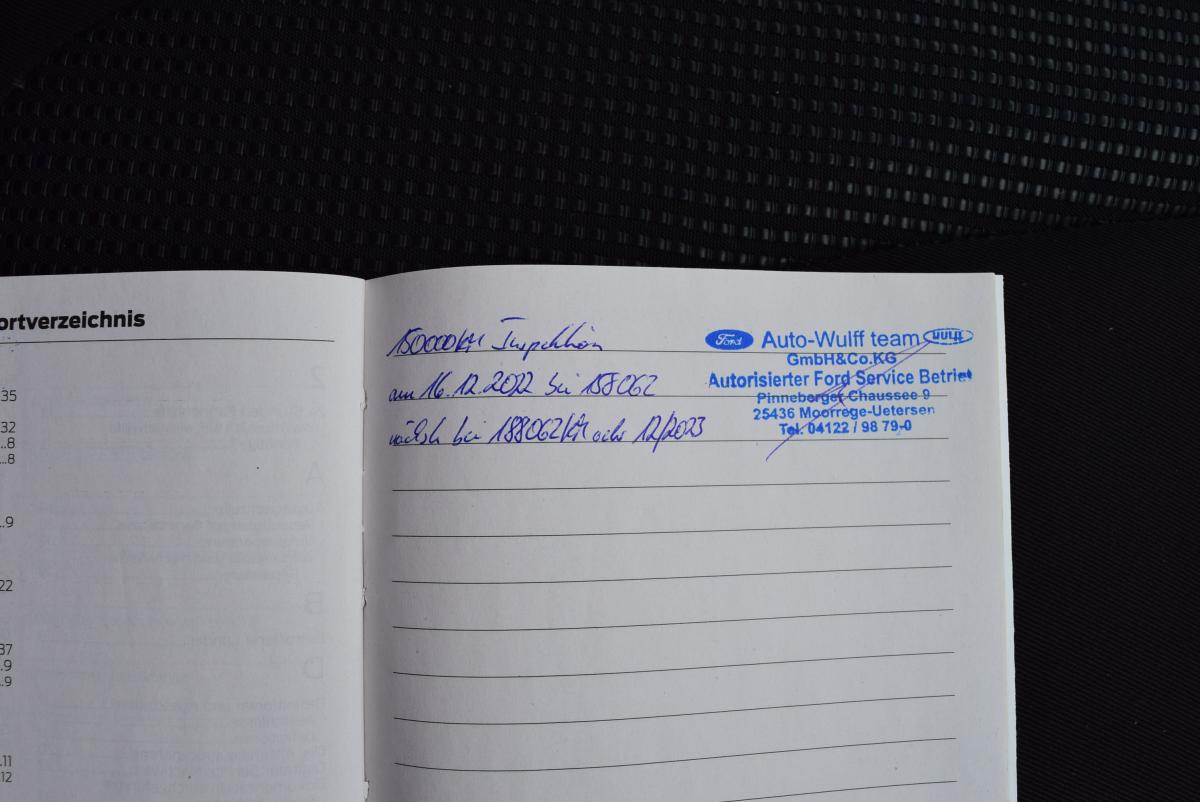 ortverzeichnis
35
32
...8
...8
...9
22
37
...9
...9
.11
12
150000KM Inspektion
am 16.12.2022 bei 158062
nächste bei 188062KM oder 12/2023
Ford Auto-Wulff team
GmbH&Co.KG
Autorisierter Ford Service Betrieb
Pinneberger Chaussee 9
25436 Moorrege-Uetersen
Tel. 04122 / 98 79-0